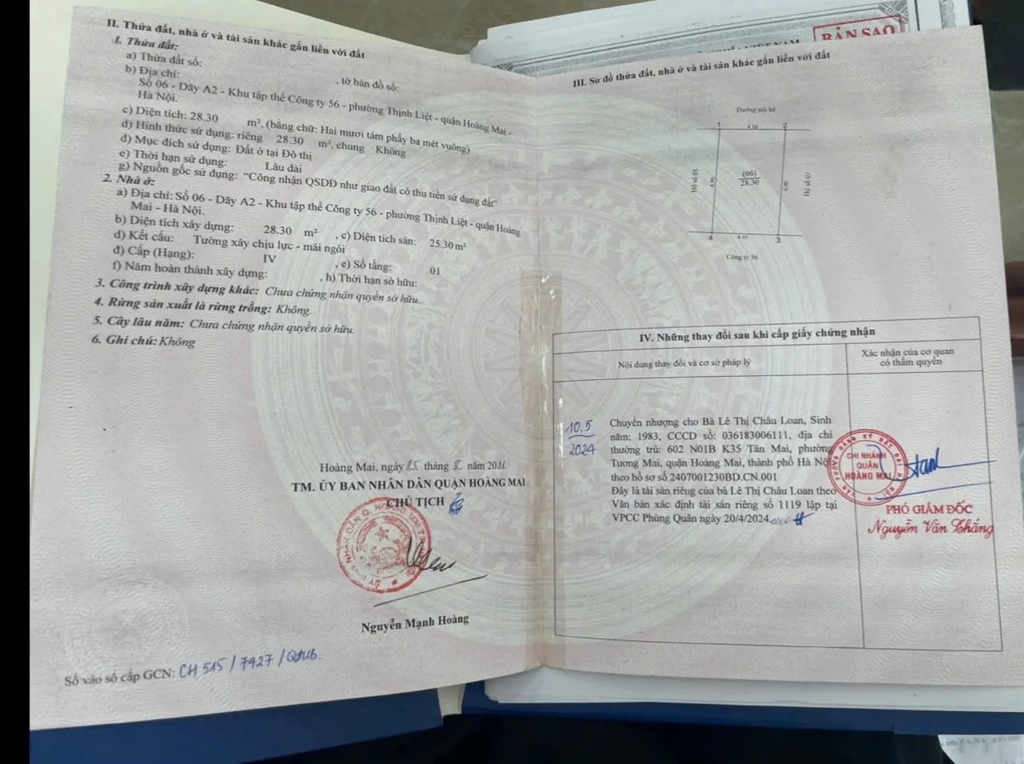 II. Thửa đất, nhà ở và tài sản khác gắn liền với đất
1. Thửa đất:
a) Thửa đất số: , tờ bản đồ số:
b) Địa chỉ:
Số 06 - Dãy A2 - Khu tập thể Công ty 56 - phường Thịnh Liệt - quận Hoàng Mai -
Hà Nội.
c) Diện tích: 28.30 m², (bằng chữ: Hai mươi tám phẩy ba mét vuông)
d) Hình thức sử dụng: riêng 28.30 m², chung Không
đ) Mục đích sử dụng: Đất ở tại Đô thị
e) Thời hạn sử dụng: Lâu dài
g) Nguồn gốc sử dụng: "Công nhận QSDĐ như giao đất có thu tiền sử dụng đất"
2. Nhà ở:
a) Địa chỉ: Số 06 - Dãy A2 - Khu tập thể Công ty 56 - phường Thịnh Liệt - quận Hoàng
Mai - Hà Nội.
b) Diện tích xây dựng: 28.30 m² , c) Diện tích sàn: 25.30 m²
d) Kết cấu: Tường xây chịu lực - mái ngói
đ) Cấp (Hạng): IV , e) Số tầng: 01
f) Năm hoàn thành xây dựng: , h) Thời hạn sở hữu:
3. Công trình xây dựng khác: Chưa chứng nhận quyền sở hữu.
4. Rừng sản xuất là rừng trồng: Không.
5. Cây lâu năm: Chưa chứng nhận quyền sở hữu.
6. Ghi chú: Không
Hoàng Mai, ngày tháng năm
TM. ỦY BAN NHÂN DÂN QUẬN HOÀNG MAI
CHỦ TỊCH
Nguyễn Mạnh Hoàng
Số vào sổ cấp GCN: CH 515 / 7427 /
BẢN SAO
III. Sơ đồ thửa đất, nhà ở và tài sản khác gắn liền với đất
Đường nội bộ
1 2
Hộ số 05 (06) Hộ số 07
28.30
4 3
Công ty 56
IV. Những thay đổi sau khi cấp giấy chứng nhận
Nội dung thay đổi và cơ sở pháp lý
Xác nhận của cơ quan
có thẩm quyền
10.5
2024
Chuyển nhượng cho Bà Lê Thị Châu Loan, Sinh
năm: 1983, CCCD số: 036183006111, địa chỉ
thường trú: 602 N01B K35 Tân Mai, phường
Tương Mai, quận Hoàng Mai, thành phố Hà Nội
theo hồ sơ số 2407001230BD.CN.001
Đây là tài sản riêng của bà Lê Thị Châu Loan theo
Văn bản xác định tài sản riêng số 1119 lập tại
VPCC Phùng Quân ngày 20/4/2024
CHI NHÁNH
QUẬN
HOÀNG MAI
PHÓ GIÁM ĐỐC
Nguyễn Văn Thắng